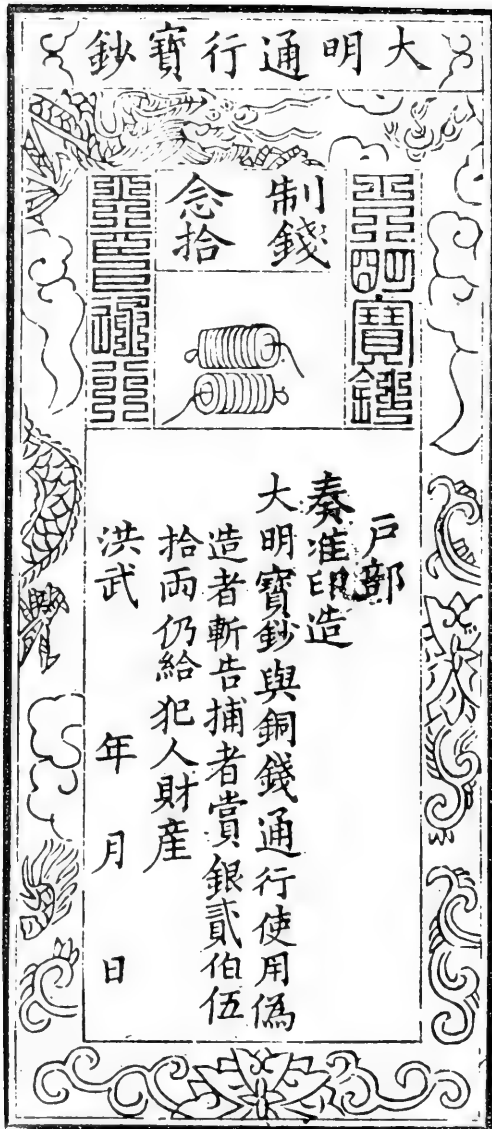 大明通行寶鈔
大明寶鈔
制錢
念拾
天下通行
戶部
奏准印造
大明寶鈔與銅錢通行使用偽
造者斬告捕者賞銀貳伯伍
拾兩仍給犯人財產
洪武 年 月 日